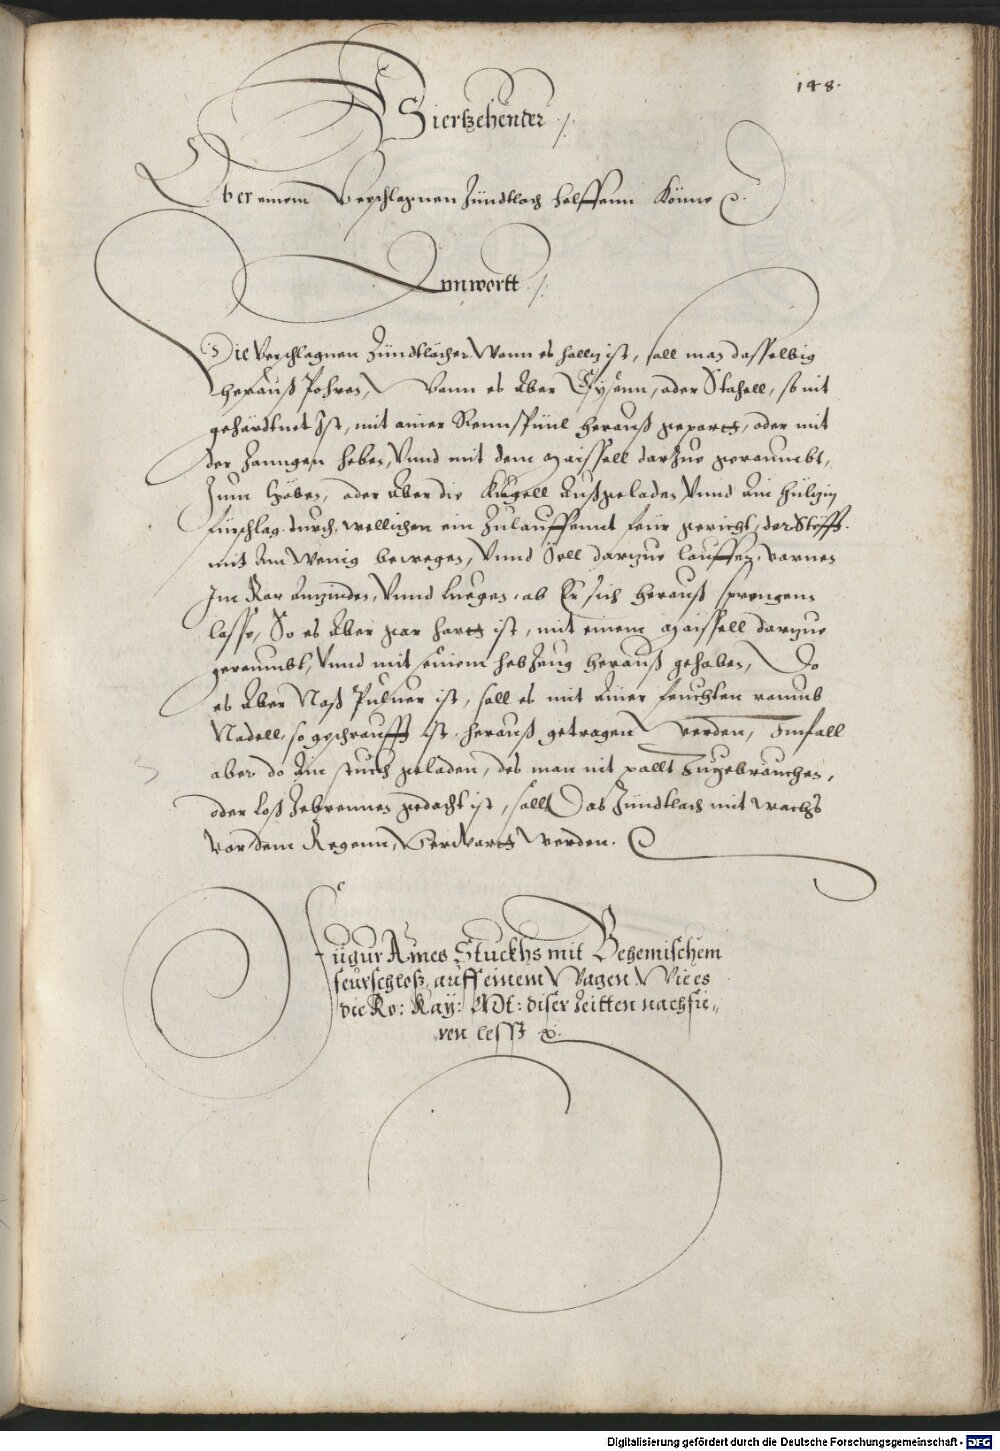 148.
Viertzehender
Ob er einem Verschlagnen Zündtloch helffenn Könne ꝛc.
Anntwortt
Die Verschlagnen Zündtlöcher Wann es holtz ist, soll man dasselbig
herauß Pohren, Wann es Aber Eysenn, oder Stahell, so nit
gehärdtnet Ist, mit ainer Rennspinl herauß geport, oder mit
der Zanngen heben, Vnnd mit dem Maissell darzue geraumbt,
Zum Heben, oder Aber die Kugell Außgeladen Vnnd Ain hültzin
fürschlag durch wellichen ein Zulauffennt feür gericht, der Stoss
mit Am Wenig bewegen, Vnnd Soll darzue lauffen, vornen
Im Ror Anzünden, Vnnd luegen, ob Er sich herauß sprengen
lasse, So es Aber gar hart ist, mit einem Maissell darzue
geraumbt, Vnnd mit seinem hebzeug herauß gehaben, Do
es Aber Naß Puluer ist, soll es mit Ainer feuchten raumb
Nadell, so geschraufft ist, herauß getragen werden, Imfall
aber do Ain stuckh geladen, des man nit pallt Zugebrauchen,
oder loß Zebrennen gedacht ist, soll Das Zündtloch mit wachs
Vor dem Regenn, Verwart Werden.
Figur Aines Stuckhs mit Behemischem
feurschloß, auff einem Wagen Wie es
die Ro: Kay: Mt: diser Zeitten nachfie-
ren lesst ꝛc.
Digitalisierung gefördert durch die Deutsche Forschungsgemeinschaft - DFG